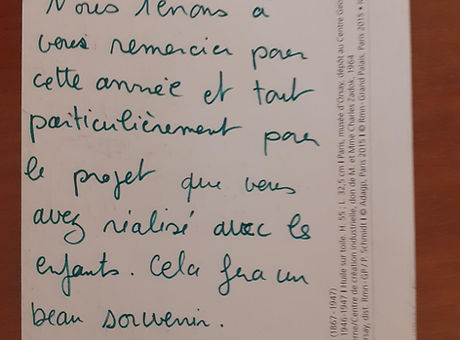 Nous tenons à
vous remercier pour
cette année et tout
particulièrement pour
le projet que vous
avez réalisé avec les
enfants. Cela fera un
beau souvenir.
(1867-1947)
1946-1947 I Huile sur toile H. 55 ; L. 32,5 cm I Paris, musée d'Orsay, dépôt au Centre Geo
erne/Centre de création industrielle, don de M. et Mme Charles Zadok, 1964
rsay, dist. Rmn-GP / P. Schmidt I © Adagp, Paris 2015 I © Rmn-Grand Palais, Paris 2015 •